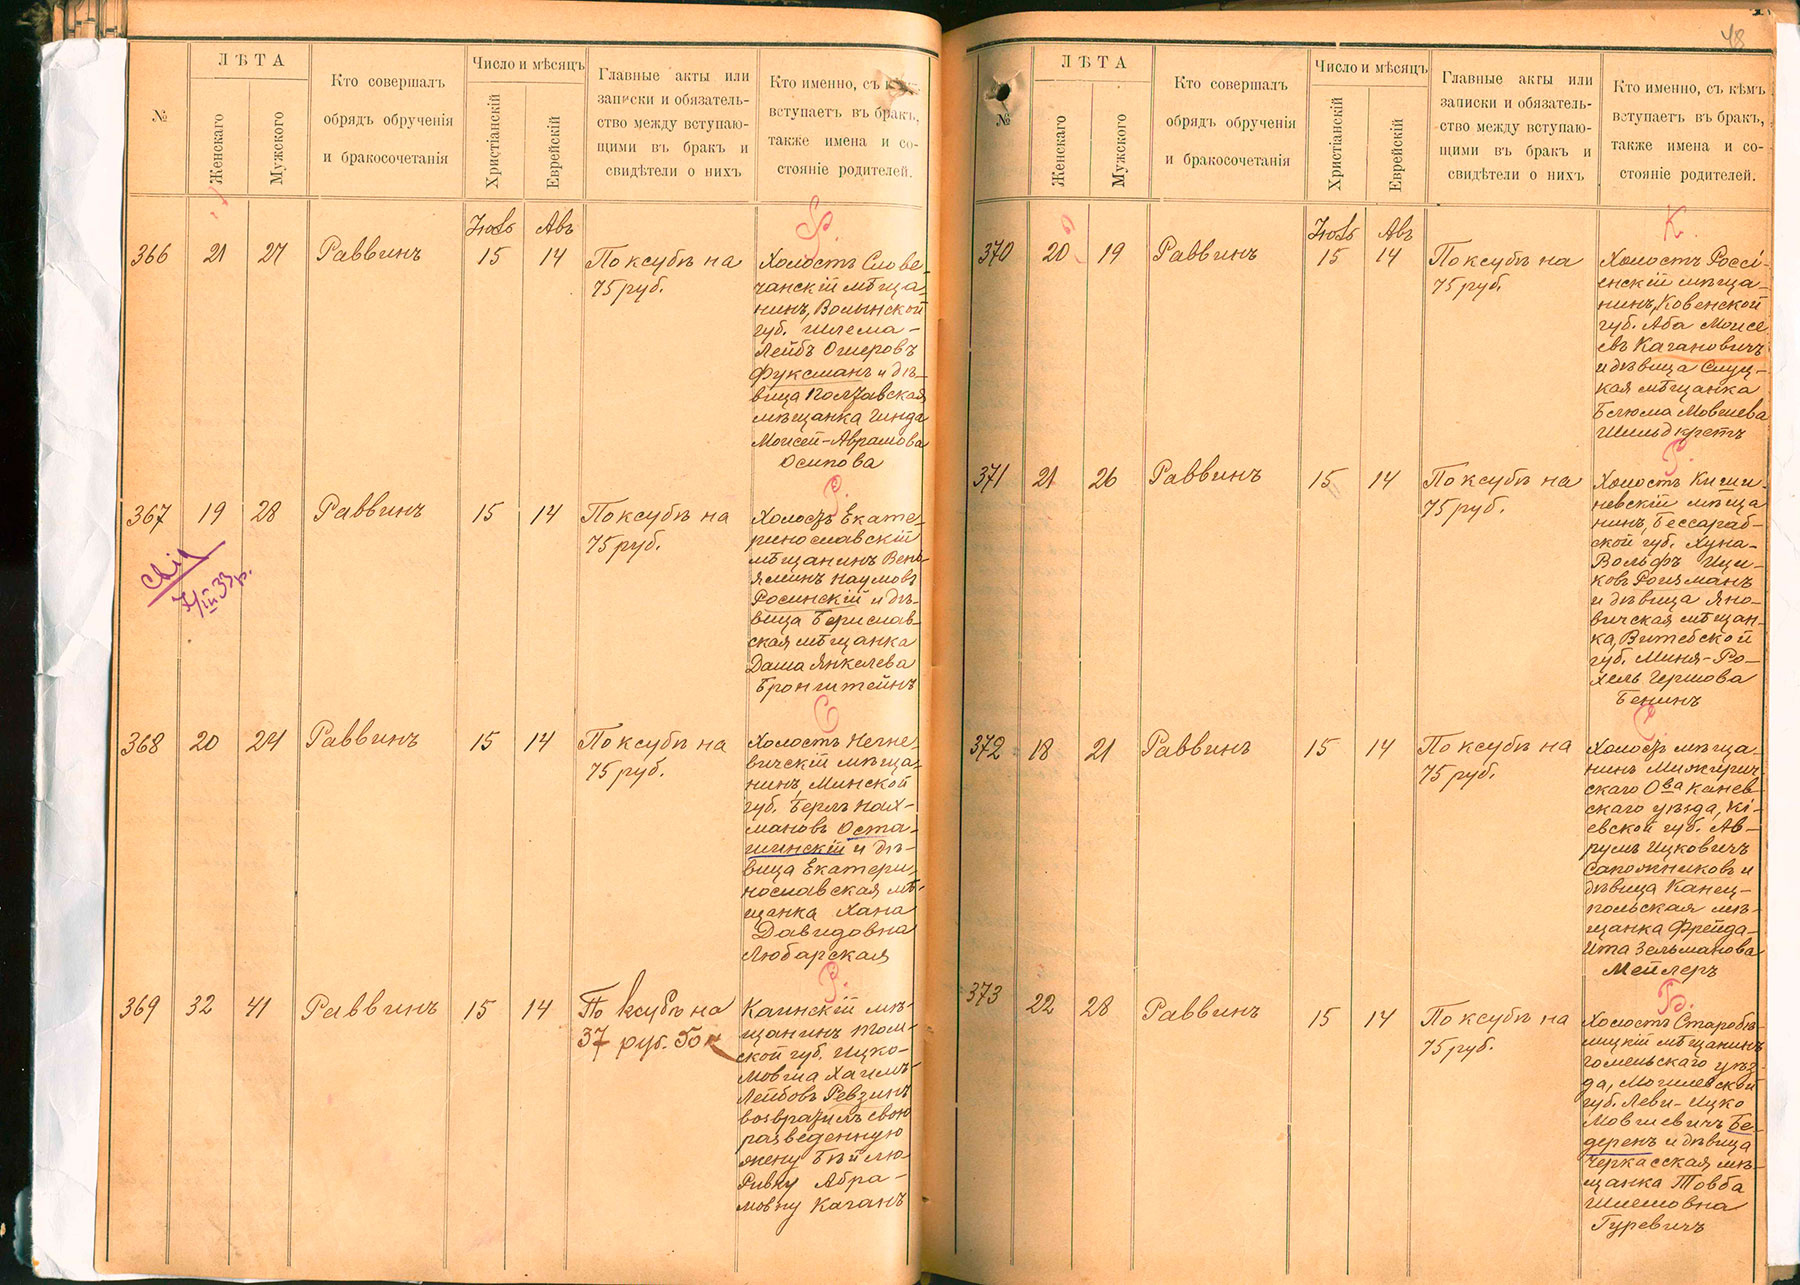 №
ЛѢТА
Женскаго
Мужского
Кто совершалъ
обрядъ обрученія
и бракосочетанія
Число и мѣсяцъ
Христіанскій
Еврейскій
Главные акты или
записки и обязатель-
ство между вступаю-
щими въ бракъ и
свидѣтели о нихъ
Кто именно, съ
вступаетъ въ бракъ,
также имена и со-
стояніе родителей.
Іюль Авъ
366 21 27 Раввинъ 15 14 По ксубѣ на
75 руб.
Холостъ Слове-
чанскій мѣща-
нинъ, Волынской
губ. Шлема-
Лейбъ Ошеровъ
Фуксманъ и дѣ-
вица Полтавская
мѣщанка Гинда
Моисей-Аврамова
Осипова
Р.
367 19 28 Раввинъ 15 14 По ксубѣ на
75 руб.
Холостъ Екате-
ринославскій
мѣщанинъ Вень-
яминъ Наумовъ
Росинскій и дѣ-
вица Бериславская
ская мѣщанка
Даша Янкелева
Бронштейнъ
7/III 33 р.
О
368 20 24 Раввинъ 15 14 По ксубѣ на
75 руб.
Холостъ Негне-
вичскій мѣща-
нинъ, Минской
губ. Берлъ Нах-
мановъ Оста-
шинскій и дѣ-
вица Екатери-
нославская мѣ-
щанка Хана
Давидовна
Любарская
Р.
369 32 41 Раввинъ 15 14 По ксубѣ на
37 руб. 50 к
Каинскій мѣ-
щанинъ Том-
ской губ. Ицко-
Мовша Хаимъ-
Лейбовъ Ревзинъ
возвратилъ свою
разведенную
жену Бейлю-
Ривку Абра-
мовну Каганъ
48
№
ЛѢТА
Женскаго
Мужского
Кто совершалъ
обрядъ обрученія
и бракосочетанія
Число и мѣсяцъ
Христіанскій
Еврейскій
Главные акты или
записки и обязатель-
ство между вступаю-
щими въ бракъ и
свидѣтели о нихъ
Кто именно, съ кѣмъ
вступаетъ въ бракъ,
также имена и со-
стояніе родителей.
Іюль Авъ
К.
370 20 19 Раввинъ 15 14 По ксубѣ на
75 руб.
Холостъ Россі-
енскій мѣща-
нинъ, Ковенской
губ. Аба Моисе
евъ Кагановичъ
и дѣвица Слуц-
кая мѣщанка
Белюма Мовшева
Шильдкретъ
Р.
371 21 26 Раввинъ 15 14 По ксубѣ на
75 руб.
Холостъ Киши-
невскій мѣща
нинъ, Бессараб-
ской губ. Хуна-
Вольфъ Ици-
ковъ Ройзманъ
и дѣвица Яно-
вичская мѣщан-
ка, Витебской
губ. Миня-Ро-
хель Гершова
Бенинъ
С.
372 18 21 Раввинъ 15 14 По ксубѣ на
75 руб.
Холостъ мѣща-
нинъ Межирич-
скаго О-ва Канев-
скаго уѣзда, Кі-
евской губ. Ав-
румъ Ицковичъ
Сапожниковъ и
дѣвица Канец-
польская мѣ-
щанка Фрейда-
Ита Зельманова
Мейлеръ
Б.
373 22 28 Раввинъ 15 14 По ксубѣ на
75 руб.
Холостъ Старобѣ-
лицкій мѣщанинъ
Гомельскаго уѣз-
да, Могилевской
губ. Леви-Ицко
Мовшевичъ Бе-
деренъ и дѣвица
Черкасская мѣ-
щанка Товба
Шлемовна
Гуревичъ